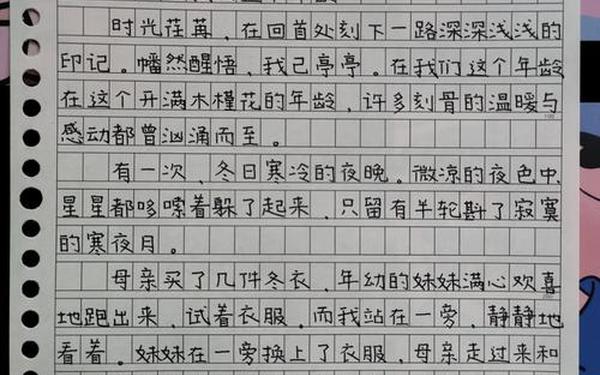 时光荏苒，在回首处刻下一路深深浅浅的
印记。幡然醒悟，我已亭亭。在我们这个年龄
在这个开满木槿花的年龄，许多刻骨的温暖与
感动都曾汹涌而至。
有一次，冬日寒冷的夜晚。微凉的夜色中
星星都哆嗦着躲了起来，只留有半轮斟了寂寞
的寒夜月。
母亲买了几件冬衣，年幼的妹妹满心欢喜
地跑出来，试着衣服。而我站在一旁，静静地
看着。妹妹在一旁换上了衣服，母亲走过来和